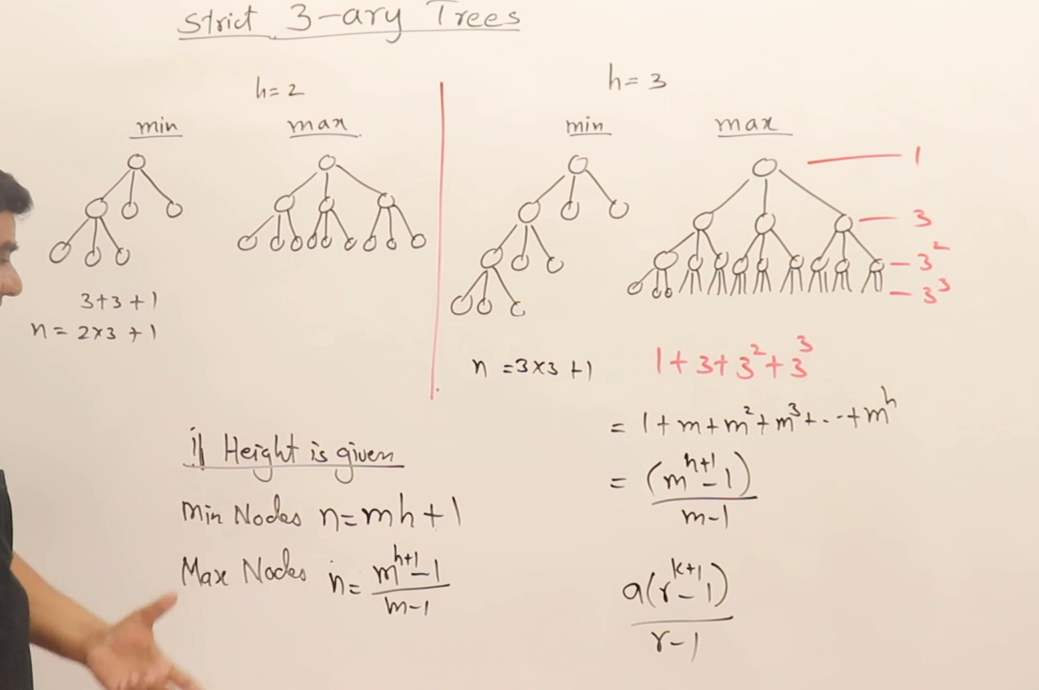 Strict 3-ary Trees
h=2
min
max
3+3+1
n=2×3+1
h=3
min
max
1
3
3²
3³
n=3×3+1
1+3+3²+3³
=1+m+m²+m³+...+mʰ
=(mʰ⁺¹-1)
m-1
if Height is given
Min Nodes n=mh+1
Max Nodes n=mʰ⁺¹-1
m-1
a(rᵏ⁺¹-1)
r-1